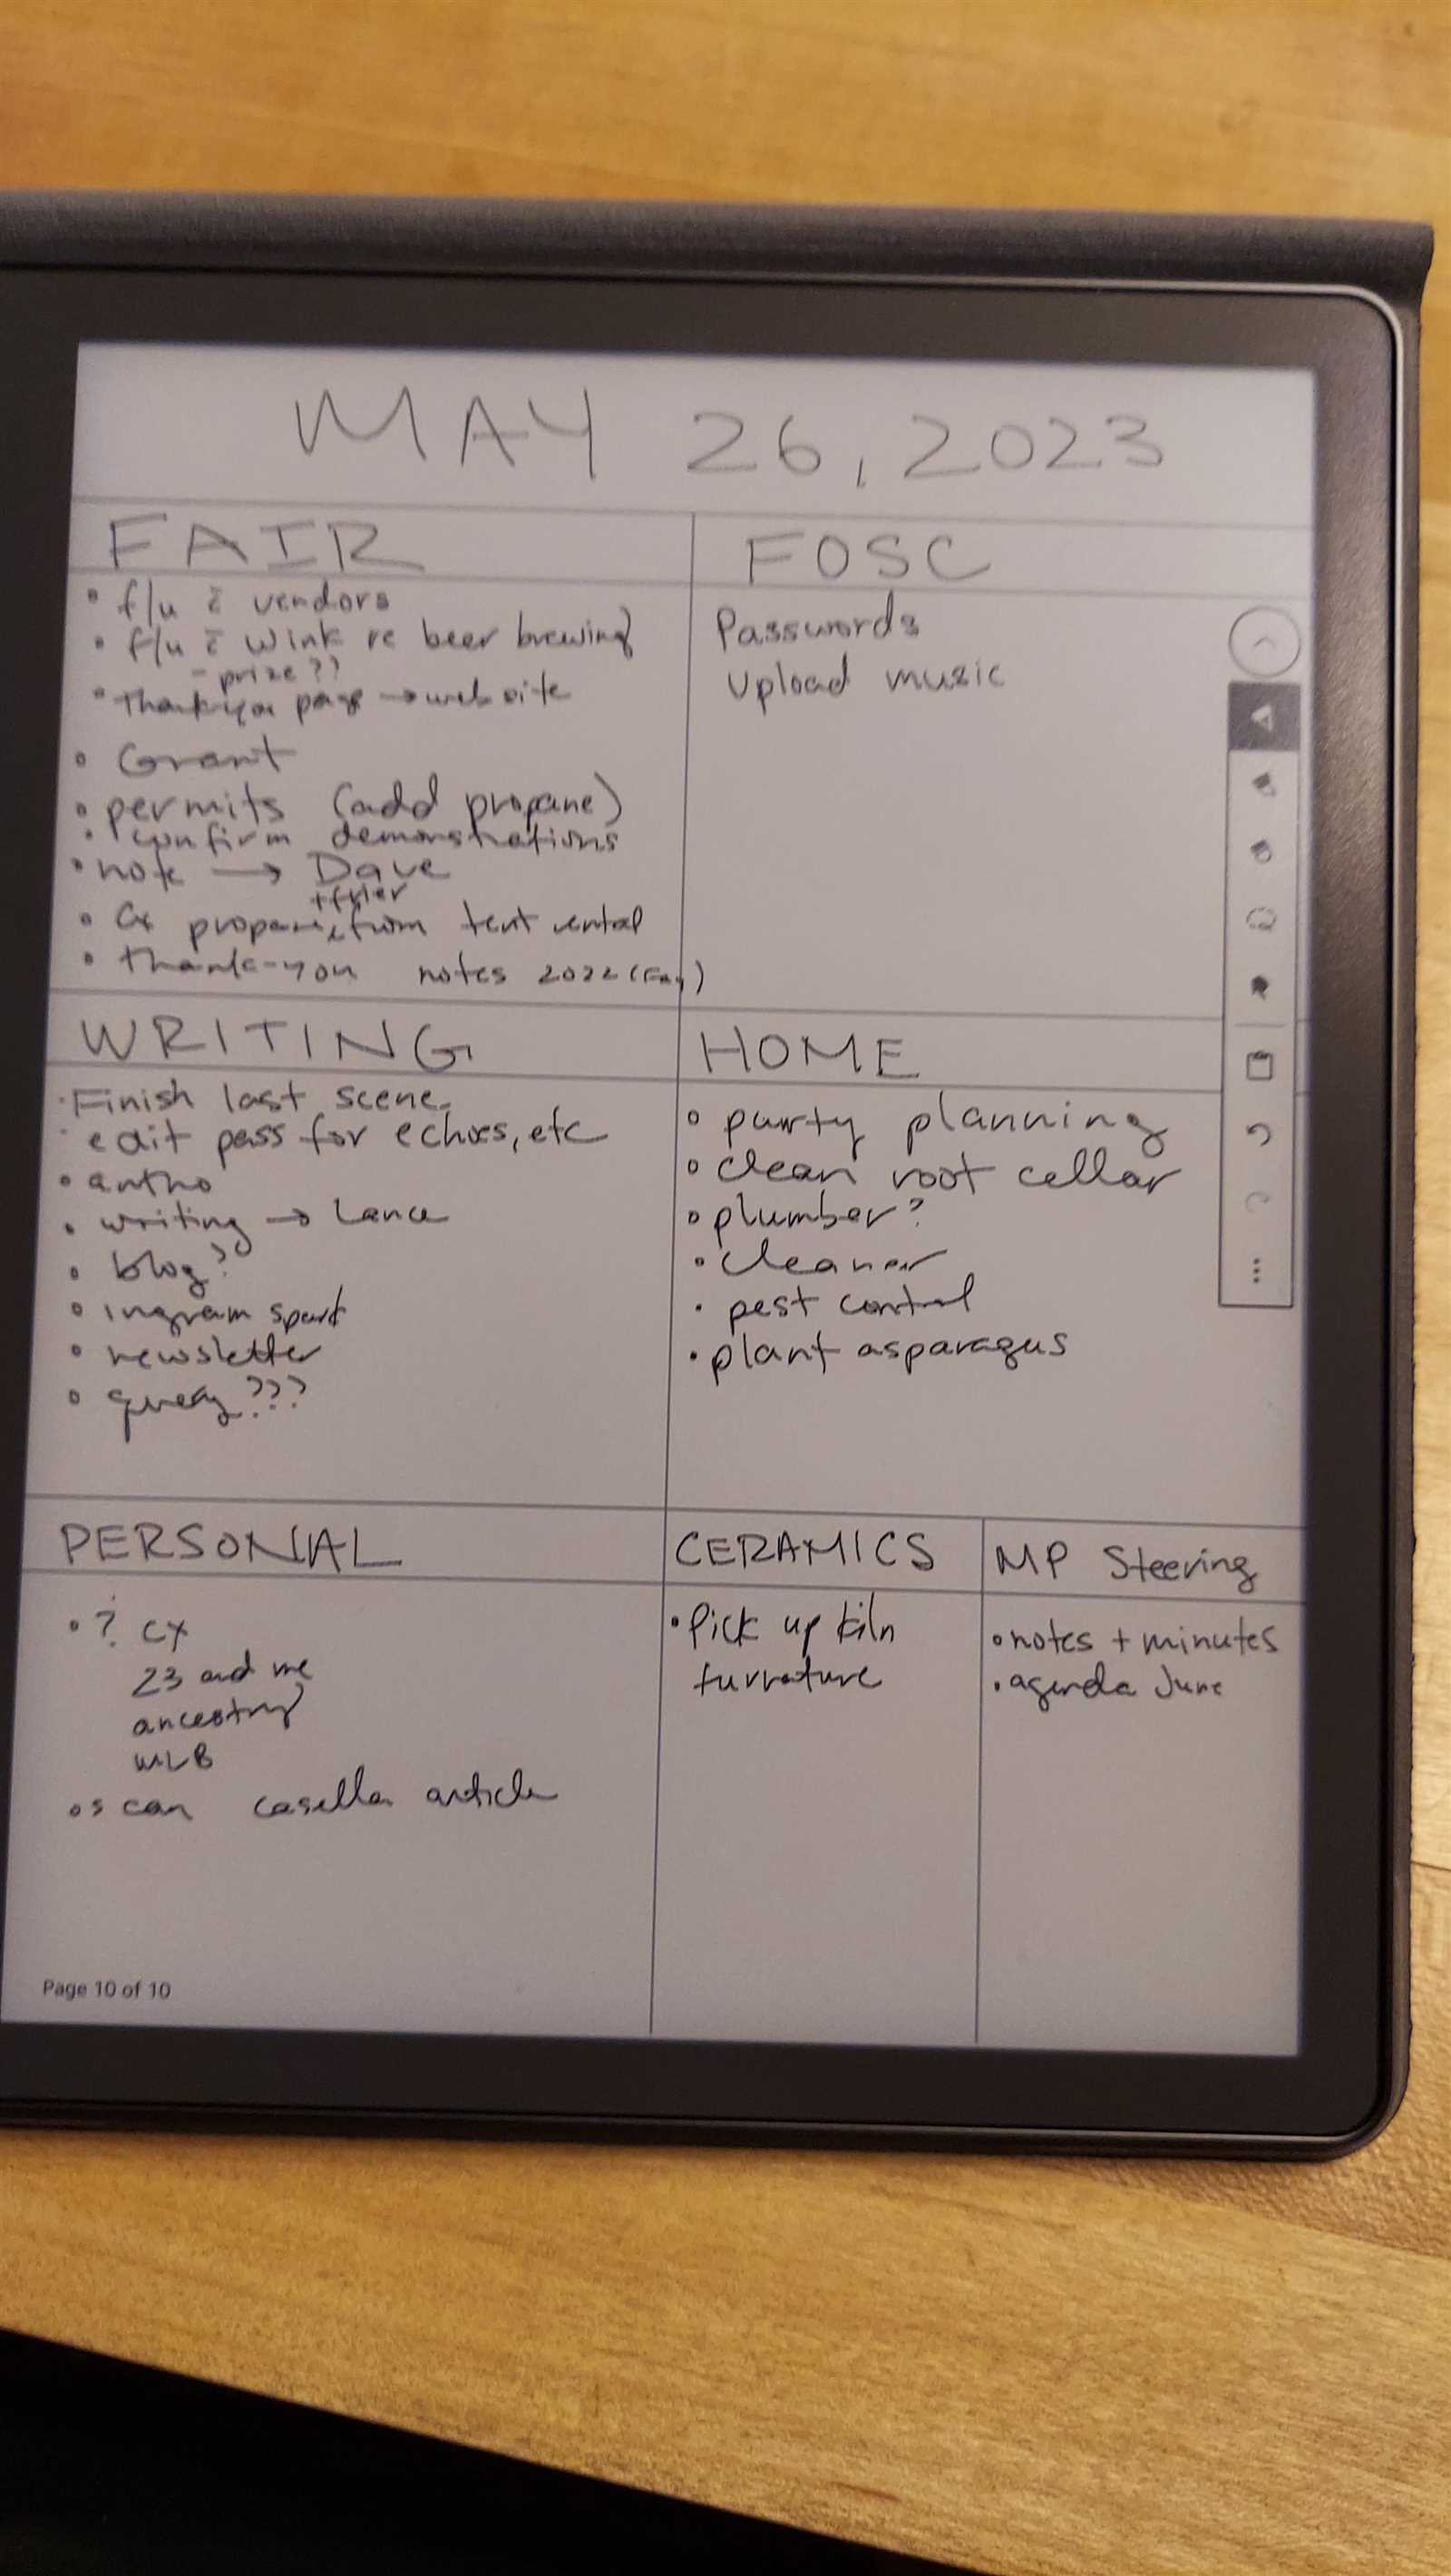 MAY 26, 2023
FAIR
• f/u c̄ vendors
• f/u c̄ Wink re beer brewing
- prize??
• thankyou page → website
• Grant
• permits (add propane)
• confirm demonstrations
• note → Dave
+ frier
• Cx propane, from tent rental
• thank-you notes 2022 (Fay)
FOSC
Passwords
Upload music
WRITING
• Finish last scene.
• edit pass for echoes, etc
• antho
• writing → Lance
• blog?
• ingram spark
• newsletter
• query???
HOME
• party planning
• clean root cellar
• plumber?
• cleaner
• pest control
• plant asparagus
PERSONAL
• ? cx
23 and me
ancestry
MLB
• scan casella article
CERAMICS
• Pick up kiln
furnature
MP Steering
• notes + minutes
• agenda June
Page 10 of 10